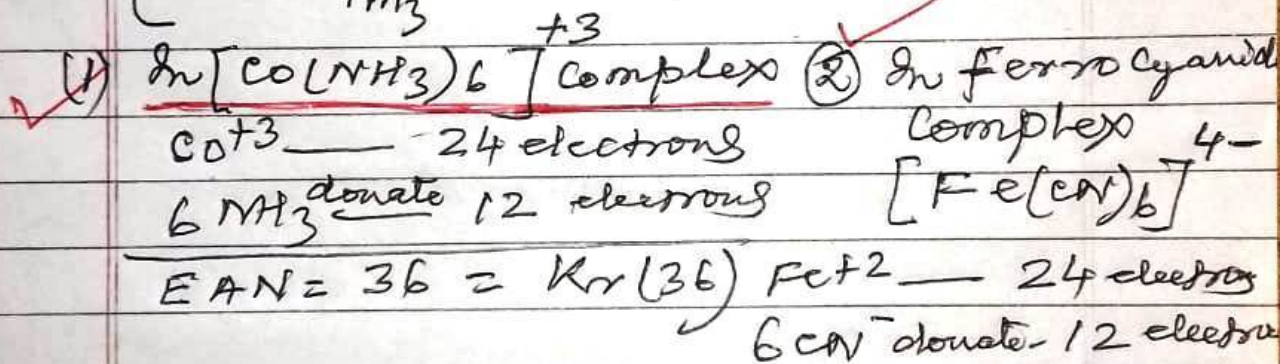 (1) In [Co(NH3)6]+3 complex
Co+3 — 24 electrons
6 NH3 donate 12 electrons
EAN = 36 = Kr(36)
② In Ferro Cyanid
Complex
[Fe(CN)6]4-
Fe+2 — 24 electros
6 CN- donate - 12 electro